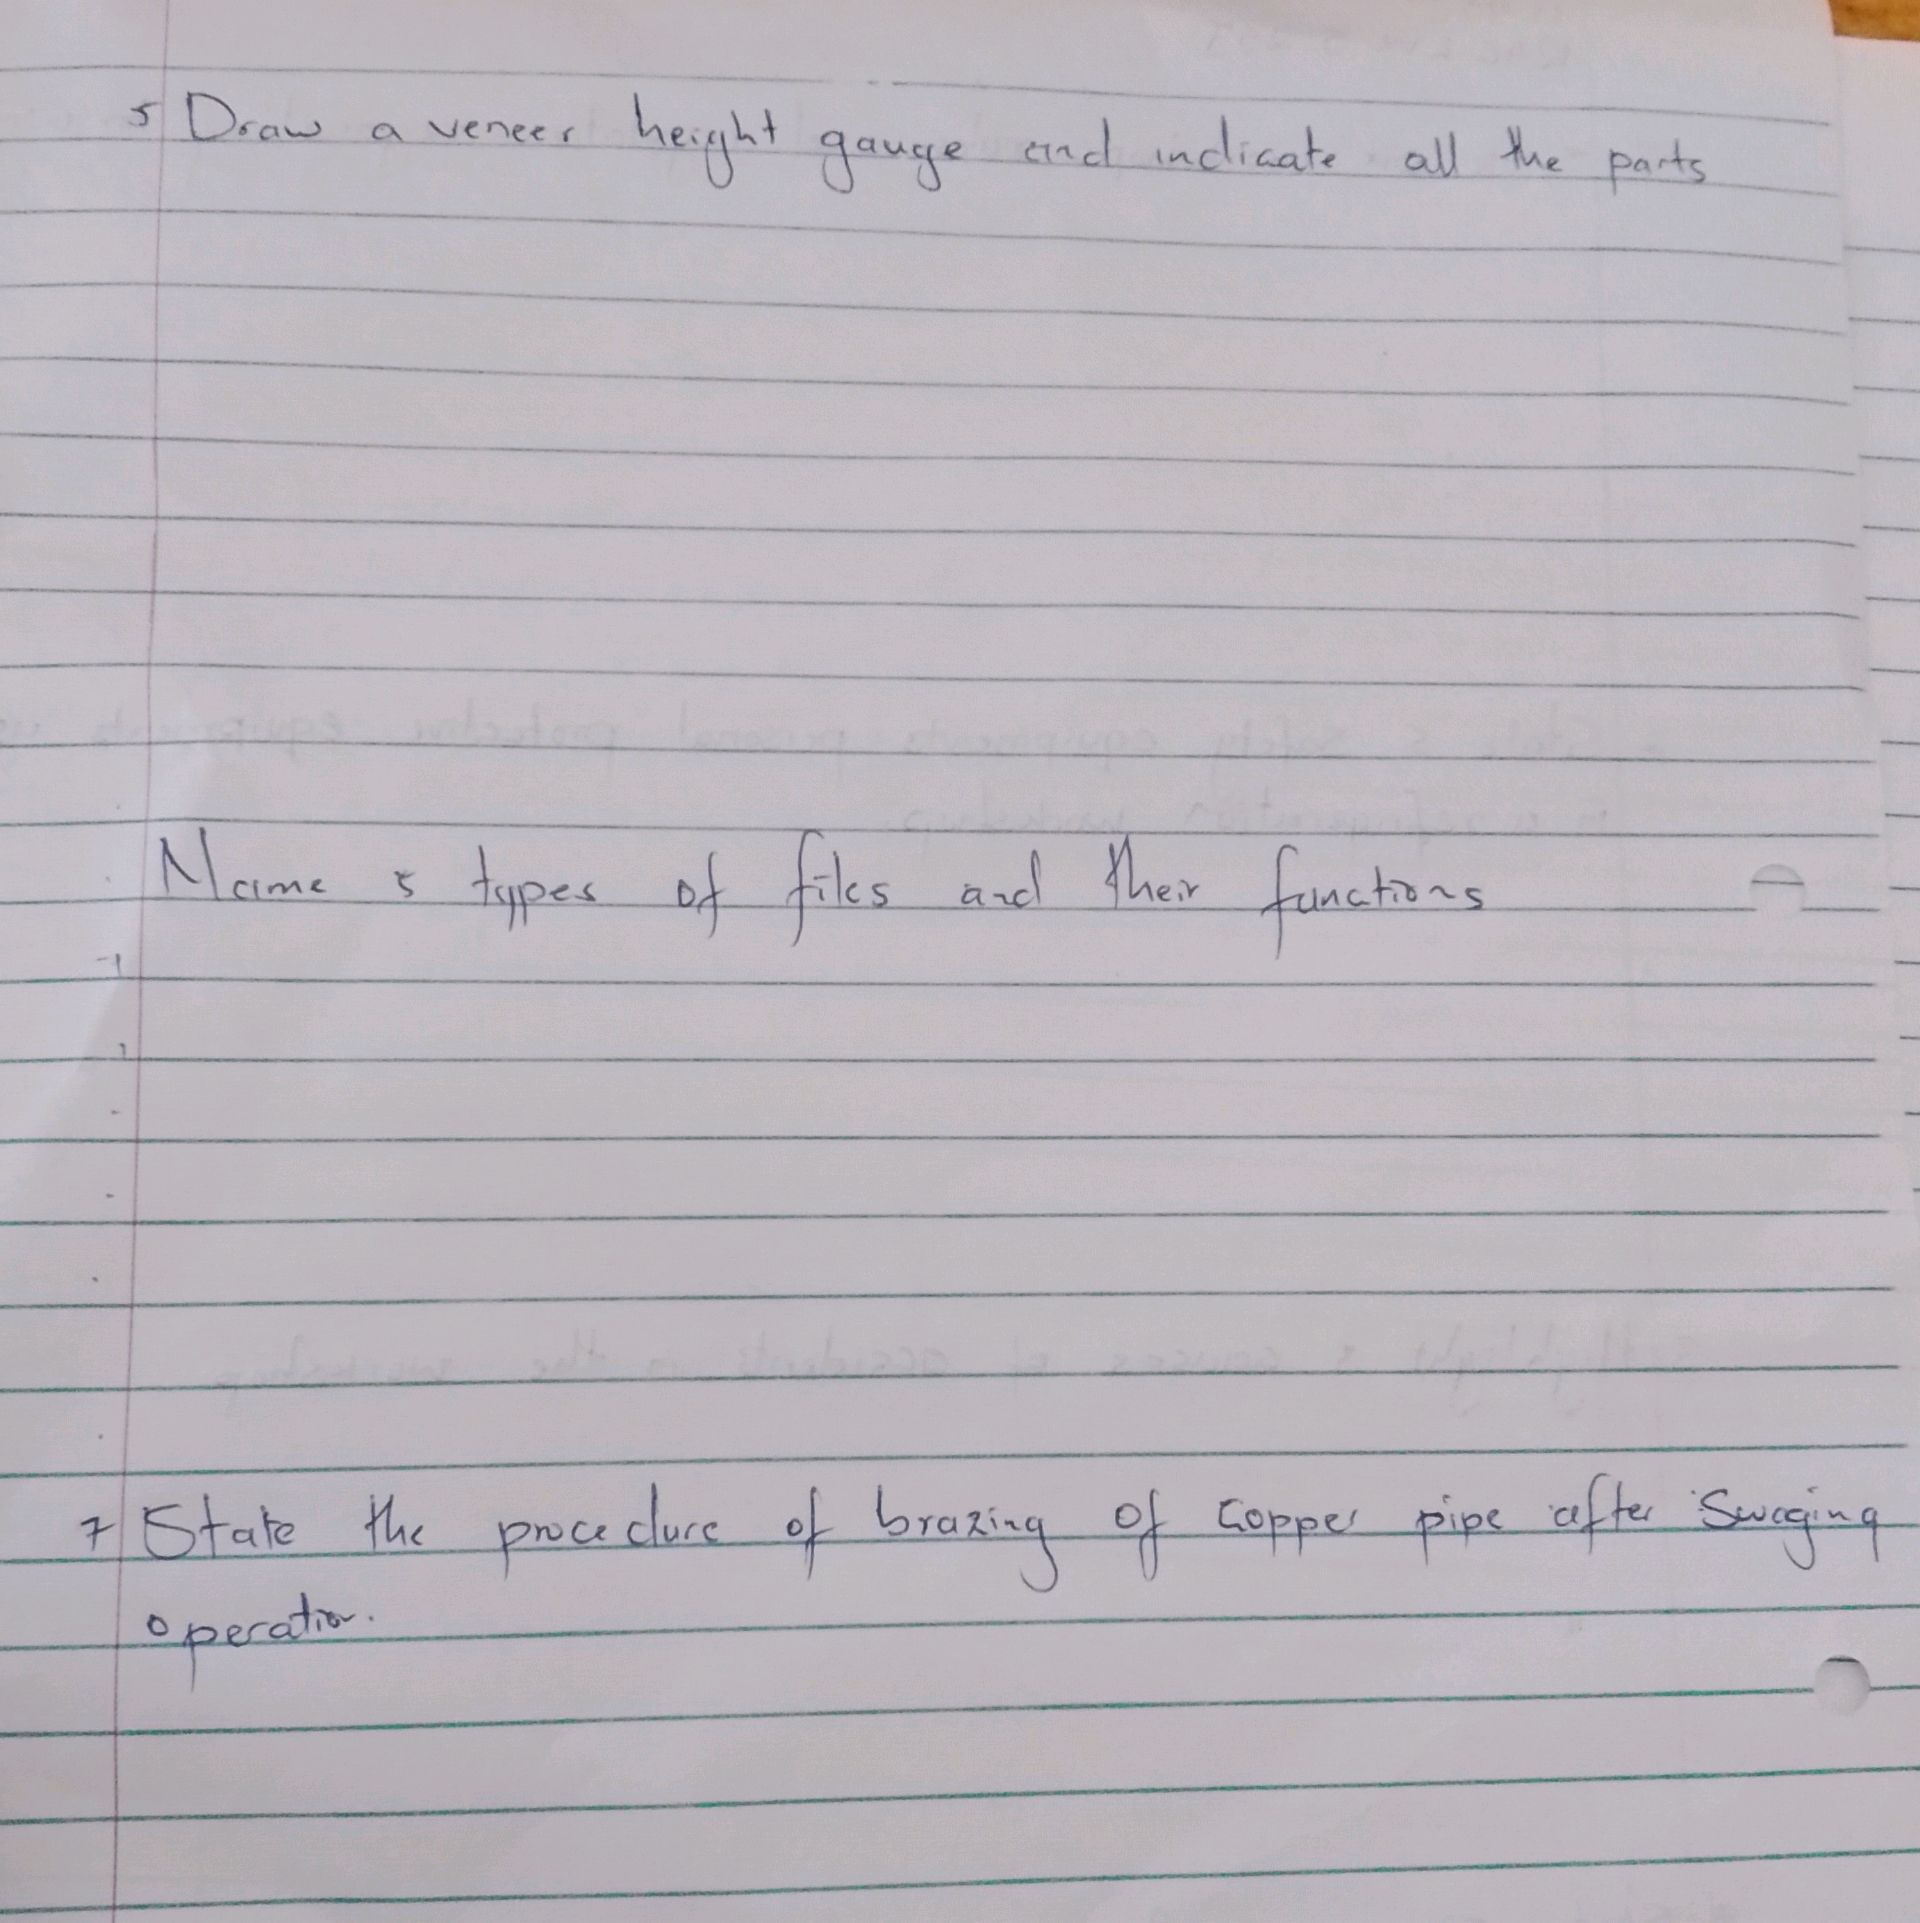 5 Draw a veneer height gauge and indicate all the parts
Name 5 types of files and their functions
7 State the procedure of brazing of copper pipe after Swaging
operation.